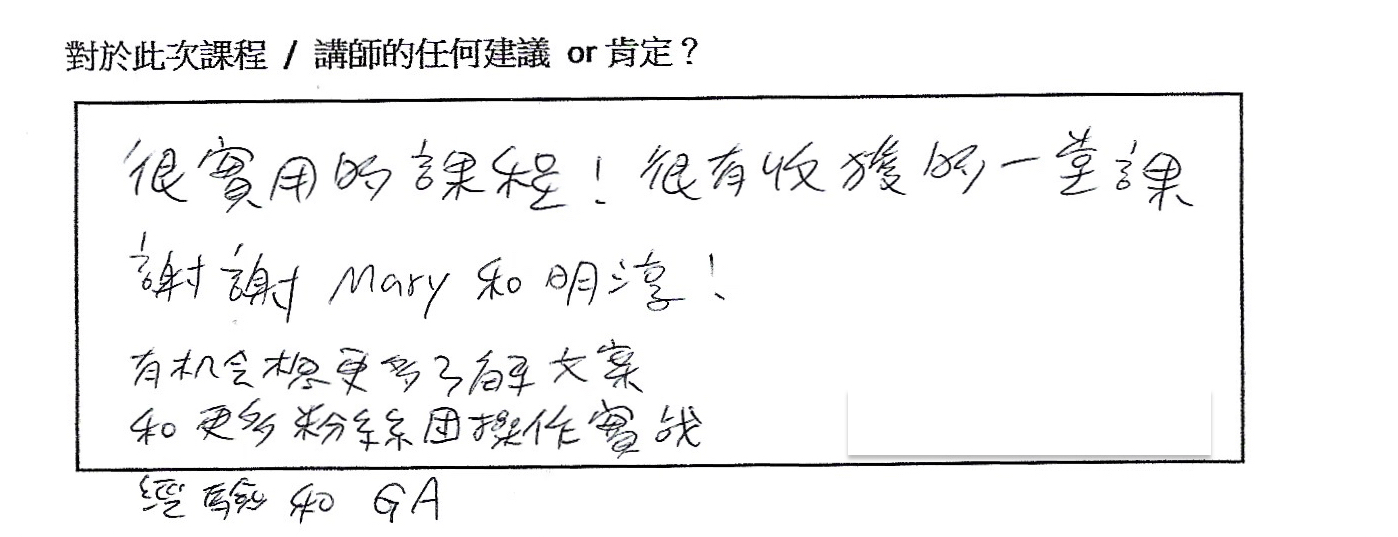 對於此次課程 / 講師的任何建議 or 肯定？
很實用的課程！很有收獲的一堂課
謝謝 Mary 和 明淳！
有机会想更多了解文案
和更多粉絲团操作實战
經驗和 GA